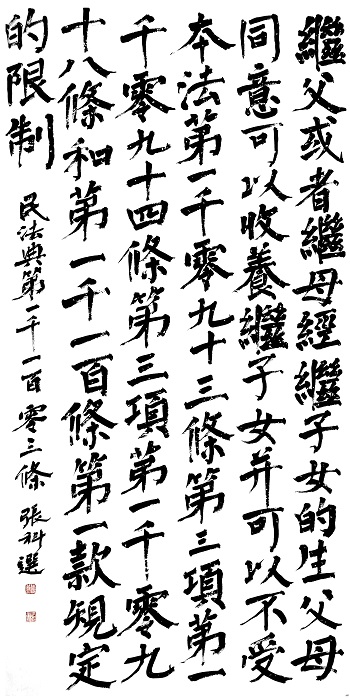 繼父或者繼母經繼子女的生父母
同意可以收養繼子女并可以不受
本法第一千零九十三條第三項第一
千零九十四條第三項第一千零九
十八條和第一千一百條第一款規定
的限制
民法典第一千一百零三條 張科選